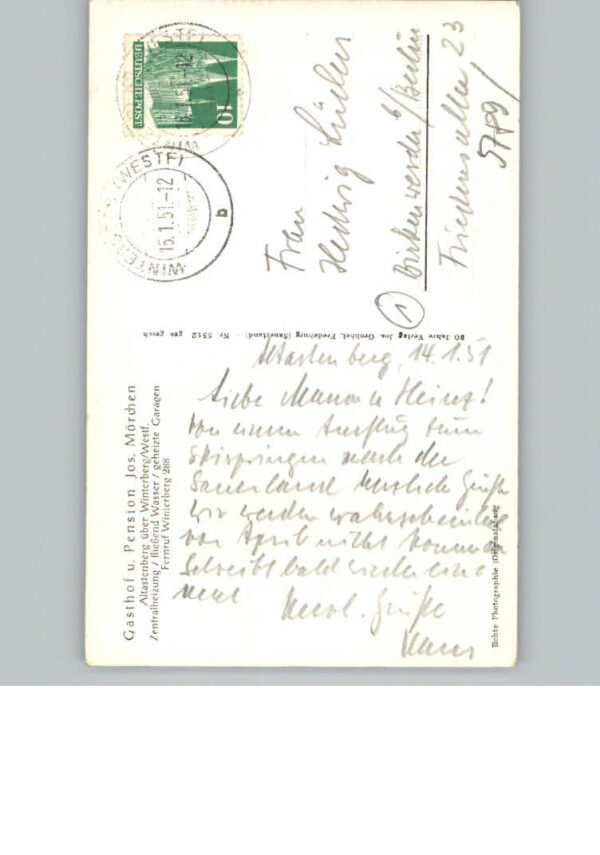 Gasthof u. Pension Jos. Mörchen
Altastenberg über Winterberg/Westf.
Zentralheizung / fließend Wasser / geheizte Garagen
Fernruf Winterberg 288
Altastenberg, 14.1.51
Liebe Mama u Heinz!
Von einem Ausflug zum
Skispringen nach der
Sauerland herzliche Grüße
Wir werden wahrscheinlich
vor April nicht kommen
Schreibt bald wieder ein
mal Herzl. Grüße
Hans
80 Jahre Verlag Jos. Grobbel, Fredeburg (Sauerland) · Nr 5512 ges gesch
Echte Photographie (Originalabzug)
DEUTSCHE POST
10
WINTERBERG (WESTF)
15.1.51.-12
b
Frau
Hedwig
Birkenwerder b/Berlin
Friedensallee 23
5789/
1